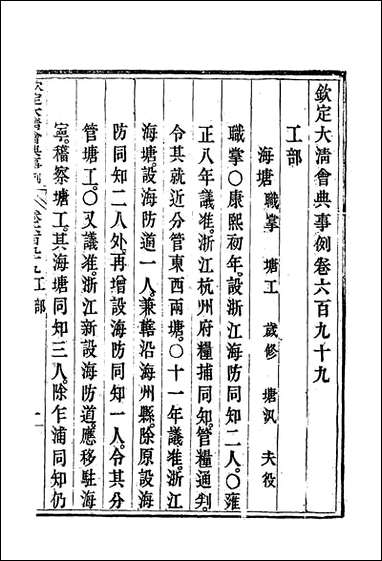 欽定大清會典事例卷六百九十九
工部
海塘 職掌 塘工 歲修 塘汛 夫役
職掌○康熙初年。設浙江海防同知二人。○雍
正八年議准。浙江杭州府糧捕同知。管糧通判。
令其就近分管東西兩塘。○十一年議准。浙江
海塘。設海防道一人。兼轄沿海州縣。除原設海
防同知二人外。再增設海防同知一人。令其分
管塘工。○又議准。浙江新設海防道。應移駐海
寧。稽察塘工。其海塘同知三人。除乍浦同知仍
欽定大清會典事例 卷六百九十九 工部 一